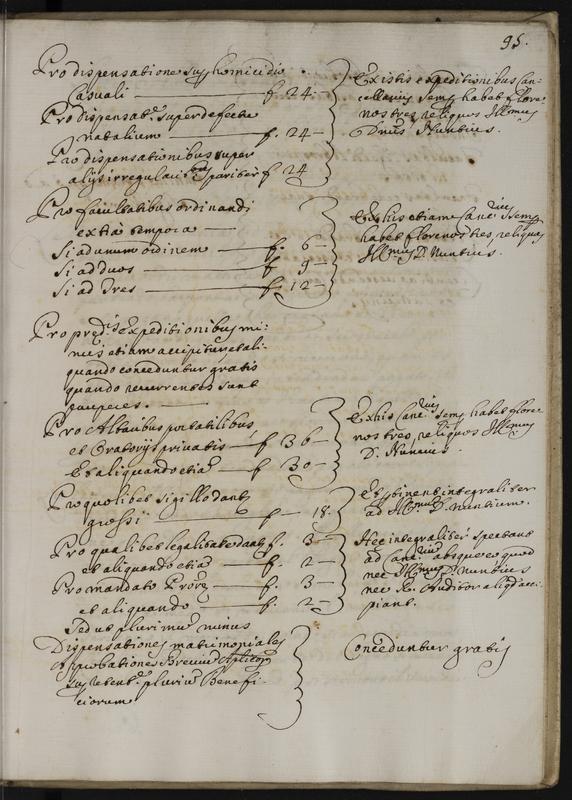 95.
Pro dispensatione sup homicidio
Casuali — f 24.
Pro dispensat.e super defectu
natalium — f. 24 —
Pro dispensationibus super
alijs irregularitbus pariter f 24
Ex istis expeditionibus Can-
cellarius semp habet flore-
nos tres, reliquos Illmus
Dnus Nuntius.
Pro facultatibus ordinandi
extra tempora —
Si ad unum ordinem — f. 6 —
Si ad duos — f 9 —
Si ad Tres — f. 12 —
Ex his etiam Cancrius semp
habet florenos tres, reliquos
Illmus D. Nuntius.
Pro pred.is expeditionibus mi-
nus etiam accipitur, et ali-
quando conceduntur gratis
quando recurrentes sunt
pauperes. —
Pro Altaribus portatilibus,
et Oratorijs privatis — f 36 —
Et aliquando etiã — f 30 —
Ex his Cancrius semp habet flore-
nos tres, reliquos Illmus
D. Nuntius.
Pro quolibet sigillo dant
grossi — f — 18.
Et ptinent integraliter
ad Illmum D. Nuntium.
Pro qualibet legalitate dant f. 3 —
et aliquando etiã — f. 2 —
Pro mandato — f. 3 —
et aliquando — f. 2 —
Sed ut plurimũ minus
Hec integraliter spectant
ad Cancrium absque eo quod
nec Illmus D. Nuntius
nec Auditor aliqd acci-
piant.
Dispensationes matrimoniales
Approbationes Brevium Aplicorum
sup retent.e plurium Benefi-
ciorum
Conceduntur gratis